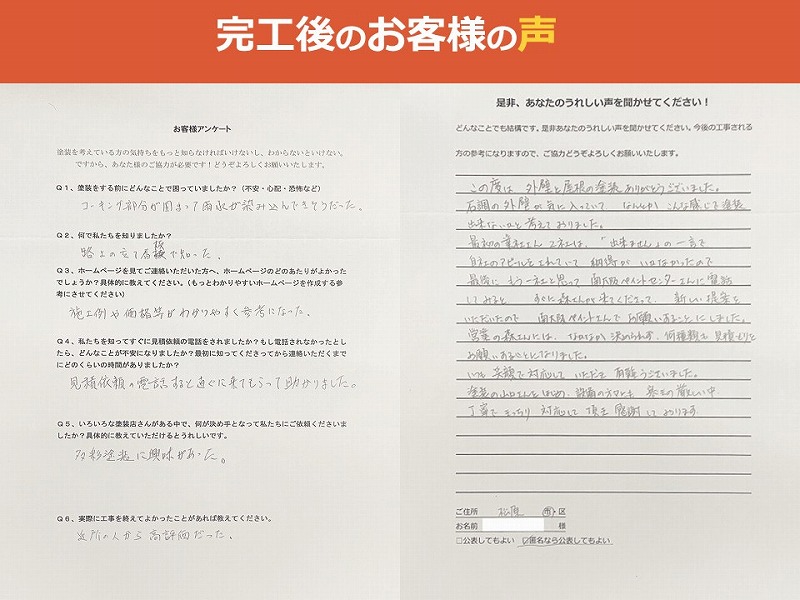 完工後のお客様の声
お客様アンケート
塗装を考えている方の気持ちをもっと知らなければいけないし、わからないといけない。
ですから、あなた様のご協力が必要です！どうぞよろしくお願いいたします。
Q1、塗装をする前にどんなことで困っていましたか？（不安・心配・恐怖など）
コーキング部分が固まって雨水が染み込んできそうだった。
Q2、何で私たちを知りましたか？
路上の立て看板で知った。
Q3、ホームページを見てご連絡いただいた方へ、ホームページのどのあたりがよかった
でしょうか？具体的に教えてください。（もっとわかりやすいホームページを作成する参
考にさせてください）
施工例や価格等がわかりやすく参考になった。
Q4、私たちを知ってすぐに見積依頼の電話をされましたか？もし電話されなかったとし
たら、どんなことが不安になりましたか？最初に知ってくださってから連絡いただくまで
にどのくらいの時間がありましたか？
見積依頼の電話すると直ぐに来てもらって助かりました。
Q5、いろいろな塗装店さんがある中で、何が決め手となって私たちにご依頼くださいま
したか？具体的に教えていただけるとうれしいです。
多彩塗装に興味があった。
Q6、実際に工事を終えてよかったことがあれば教えてください。
近所の人から高評価だった。
是非、あなたのうれしい声を聞かせてください！
どんなことでも結構です。是非あなたのうれしい声を聞かせてください。今後の工事される
方の参考になりますので、ご協力どうぞよろしくお願いいたします。
この度は 外壁と屋根の塗装ありがとうございました。
石調の外壁が気に入っていて なんとか こんな感じで塗装
出来ないかと考えておりました。
最初の業社さん 2社は、「出来ません」の一言で
自社のアピールをされていて 納得が いかなかったので
最後に もう一社と思って 南大阪ペイントセンターさんに電話
してみると すぐに森さんが来てくださって、新しい提案を
いただいたので 南大阪ペイントさんで お願いすることにしました。
営業の森さんには、なかなか決められず、何種類も見積もりを
お願いすることになりました。
いつも笑顔で対応して いただき 有難うございました。
塗装の山口さんをはじめ、設備の方々も 暑さの厳しい中
丁寧できっちり 対応して頂き 感謝しております。
ご住所 松原 市 区
お名前 様
□公表してもよい ☑匿名なら公表してもよい